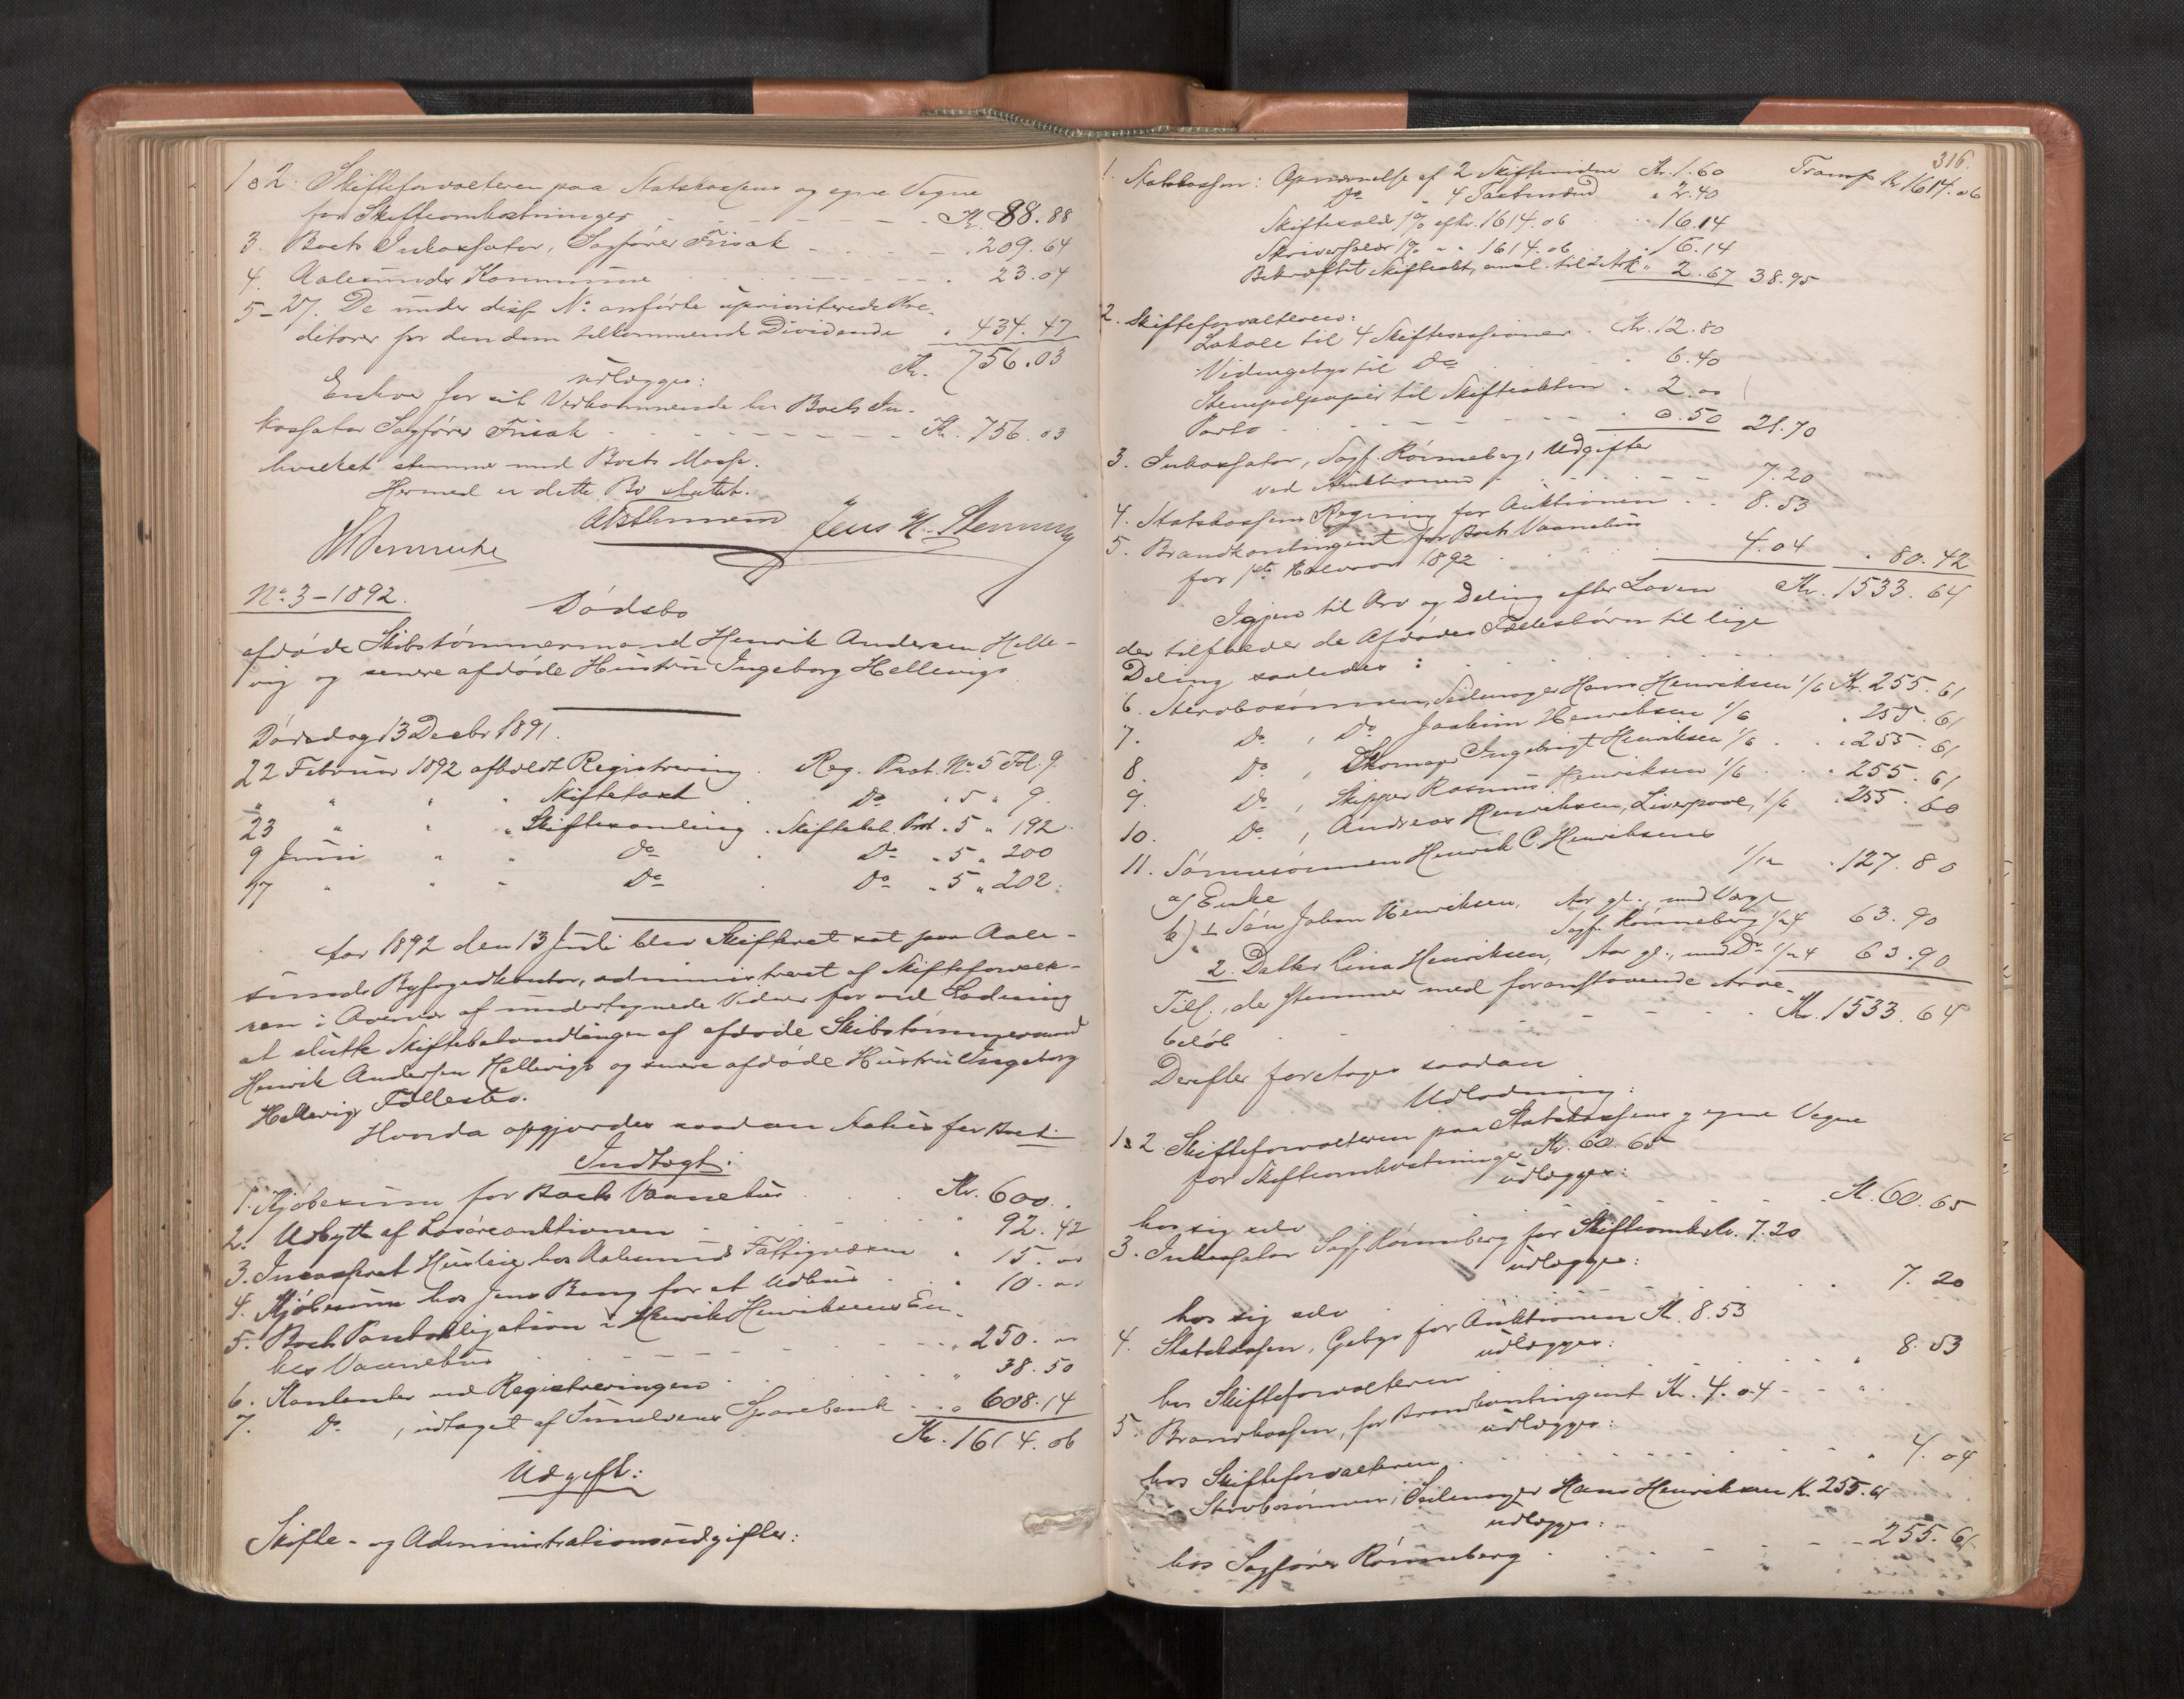 1 o 2. Skifteforvalteren paa Statskassens og egne Vegne
for Skifteomkostninger Kr. 88.88
3. Boets Inkassator, Sagfører Frisak 209.64
4. Aalesunds Kommune 23.04
5-27. De under disse No anførte uprioriterede Kre-
ditorer for den dem tilkommende Dividende 434.47
Kr. 756.03
udlægges:
Enhver for sit Vedkommende hos Boets In-
kassator Sagfører Frisak Kr. 756.03
hvilket stemmer med Boets Masse.
Hermed er dette Bo sluttet.
No 3 - 1892.
Dødsbo
afdøde Skibstømmermand Henrik Andersen Helle-
vig og senere afdøde Hustru Ingeborg Hellevigs
Dødsdag 13 Decbr 1891.
22 Februar 1892 afholdt Registrering. Reg. Prot. No 5 Fol. 9.
" " " " Skiftetaxt Do " 5 " 9.
23 " " " Skiftesamling. Skiftebeh. Prot. " 5 " 192
9 Juni " " Do Do " 5 " 200
27 " " " Do Do " 5 " 202.
Aar 1892 den 13 Juli blev Skifteret sat paa Aale-
sunds Byfogedkontor, administreret af Skifteforvalte-
ren i Overvær af undertegnede Vidner for ved Lodning
at slutte Skiftebehandlingen af afdøde Skibstømmermand
Henrik Andersen Hellevigs og senere afdøde Hustru Ingeborg
Hellevigs Fællesbo.
Hvorda opgjordes saadan Status for Boet:
Indtægt:
1. Kjøbesum for Boets Vaanehus Kr. 600.
2. Udbytte af Løsøreauktionen " 92.42
3. Incasseret Husleie hos Aalesunds Fattigvæsen " 15.00
4. Kjøbesum hos Jens Bang for et Udhus " 10.00
5. Boets Pantobligation i Henrik Henriksens En-
kes Vaanehus " 250.00
6. Kontanter ved Registreringen " 38.50
7. Do, udtaget af Søndmøres Sparebank " 608.14
Kr. 1614.06
Udgift:
Skifte- og Administrationsudgifter:
316.
Transp. Kr. 1614.06
1. Statskassen: Opnævnelse af 2 Skiftevidner Kr. 1.60
Do " 4 Taxtmænd " 2.40
Skiftesalær 1% aftr. 1614.06 " 16.14
Skriversalær 1% " " 1614.06 " 16.14
Bekræftet Skifteakt, anal. til 2 Ark " 2.67 38.95
2. Skifteforvalteren:
Lokale til 4 Skiftesessioner Kr. 12.80
Vidnegebyr til Do " 6.40
Stempelpapir til Skifteakten " 2.00
Porto " 0.50 21.70
3. Inkassator, Sagf. Rønneberg, Udgifter
ved Auktionen 7.20
4. Statskassens Regning for Auktionen 8.53
5. Brandkontingent for Boets Vaanehus
for 1ste Halvaar 1892 4.04 " 80.42
Igjen til Arv og Deling efter Loven Kr. 1533.64
der tilfalder de Afdødes Fællesbørn til lige
Deling saaledes:
6. Stervbosønnen, Seilmager Hans Henriksen 1/6 Kr. 255.61
7. Do, Do Joakim Henriksen 1/6 " 255.61
8. Do, Skomager Ingebrigt Henriksen 1/6 " 255.61
9. Do, Skipper Rasmus Henriksen 1/6 " 255.61
10. Do, Andreas Henriksen, Liverpool, 1/6 " 255.60
11. Sønnesønnen Henrik C. Henriksens
a) Enke 1/12 " 127.80
b) 1. Søn Johan Henriksen, Aar gl., med Værge
Sagf. Rønneberg 1/24 63.90
2. Datter Lina Henriksen, Aar gl., med Do 1/24 63.90
Tils., der stemmer med foranstaaende Arve-
beløb Kr. 1533.64
Derefter foretoges saadan
Udlodning:
1 & 2. Skifteforvalteren paa Statskassens og egne Vegne
for Skifteomkostninger Kr. 60.65
udlægges:
hos sig selv Kr. 60.65
3. Inkassator Sagf. Rønneberg for Skifteomk. Kr. 7.20
udlægges:
hos sig selv 7.20
4. Statskassen, Gebyr for Auktionen Kr. 8.53
udlægges:
hos Skifteforvalteren " 8.53
5. Brandkassen, for Brandkontingent Kr. 4.04
udlægges:
hos Skifteforvalteren " 4.04
Stervbosønnen, Seilmager Hans Henriksen Kr. 255.61
udlægges:
hos Sagfører Rønneberg 255.61